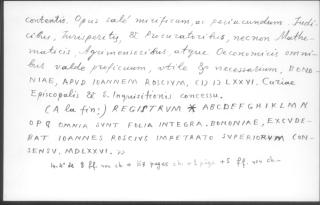 contentis. Opus sale mirificum, ac periucundum. Iudi-
cibus, Iurisperitis, & Procuratoribus, necnon Mathe-
maticis, Agrimensoribus, atque Oeconomicis omni-
bus valde proficuum, utile & necessarium. BONO-
NIAE, APVD IOANNEM ROSCIVM, CIↃ IↃ LXXVI. Curiae
Episcopalis & S. Inquisitionis concessu.
(A la fin:) REGISTRVM * ABCDEFGHIKLMN
OPQ OMNIA SVNT FOLIA INTEGRA. BONONIAE, EXCVDE-
BAT IOANNES ROSCIVS IMPETRATO SVPERIORVM CON-
SENSV, MDLXXVI. »
in-4° de 8 ff. non ch + 117 pages ch + 1 page + 5 ff. non ch-